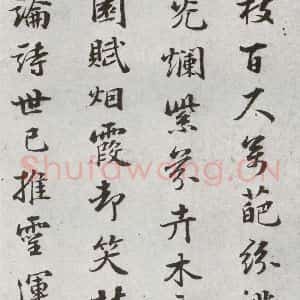 枝百尺萬葩
光爛紫芬卉木
園賦烟霞却笑
論詩世已推靈運
Shufawang.CN